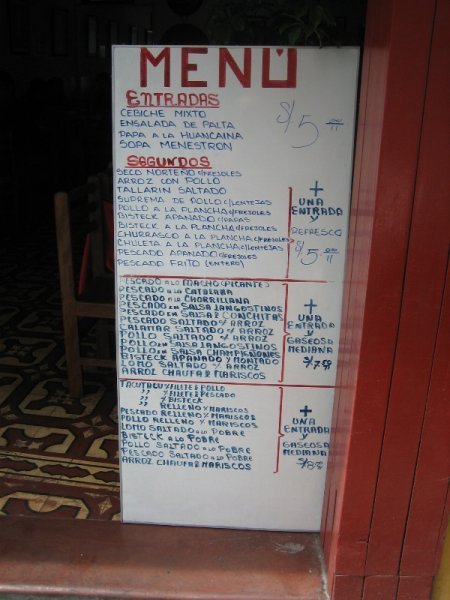 MENÚ
ENTRADAS
CEBICHE MIXTO
ENSALADA DE PALTA
PAPA A LA HUANCAINA
SOPA MENESTRON
S/5
SEGUNDOS
SECO NORTEÑO C/FREJOLES
ARROZ CON POLLO
TALLARIN SALTADO
SUPREMA DE POLLO C/LENTEJAS
POLLO A LA PLANCHA C/FREJOLES
BISTECK APANADO C/PAPAS
BISTECK A LA PLANCHA C/FREJOLES
CHURRASCO A LA PLANCHA C/FREJOLES
CHULETA A LA PLANCHA C/LENTEJAS
PESCADO APANADO C/FREJOLES
PESCADO FRITO (ENTERO)
+
UNA
ENTRADA
Y
REFRESCO
S/5
PESCADO A LO MACHO (PICANTE)
PESCADO A LA CATALANA
PESCADO A LA CHORRILLANA
PESCADO EN SALSA LANGOSTINOS
PESCADO EN SALSA D CONCHITAS
PESCADO SALTADO C/ ARROZ
CALAMAR SALTADO C/ ARROZ
POLLO SALTADO C/ ARROZ
POLLO EN SALSA LANGOSTINOS
POLLO EN SALSA CHAMPIGNONES
BISTECK APANADO Y MONTADO
LOMO SALTADO C/ ARROZ
ARROZ CHAUFA D MARISCOS
+
UNA
ENTRADA
Y
GASEOSA
MEDIANA
TACUTACU Y FILETE D POLLO
" Y FILETE D PESCADO
" Y BISTECK
" RELLENO Y MARISCOS
PESCADO RELLENO Y MARISCOS
POLLO RELLENO Y MARISCOS
LOMO SALTADO A LO POBRE
BISTECK A LO POBRE
POLLO SALTADO A LO POBRE
PESCADO SALTADO A LO POBRE
ARROZ CHAUFA D MARISCOS
+
UNA
ENTRADA
Y
GASEOSA
MEDIANA